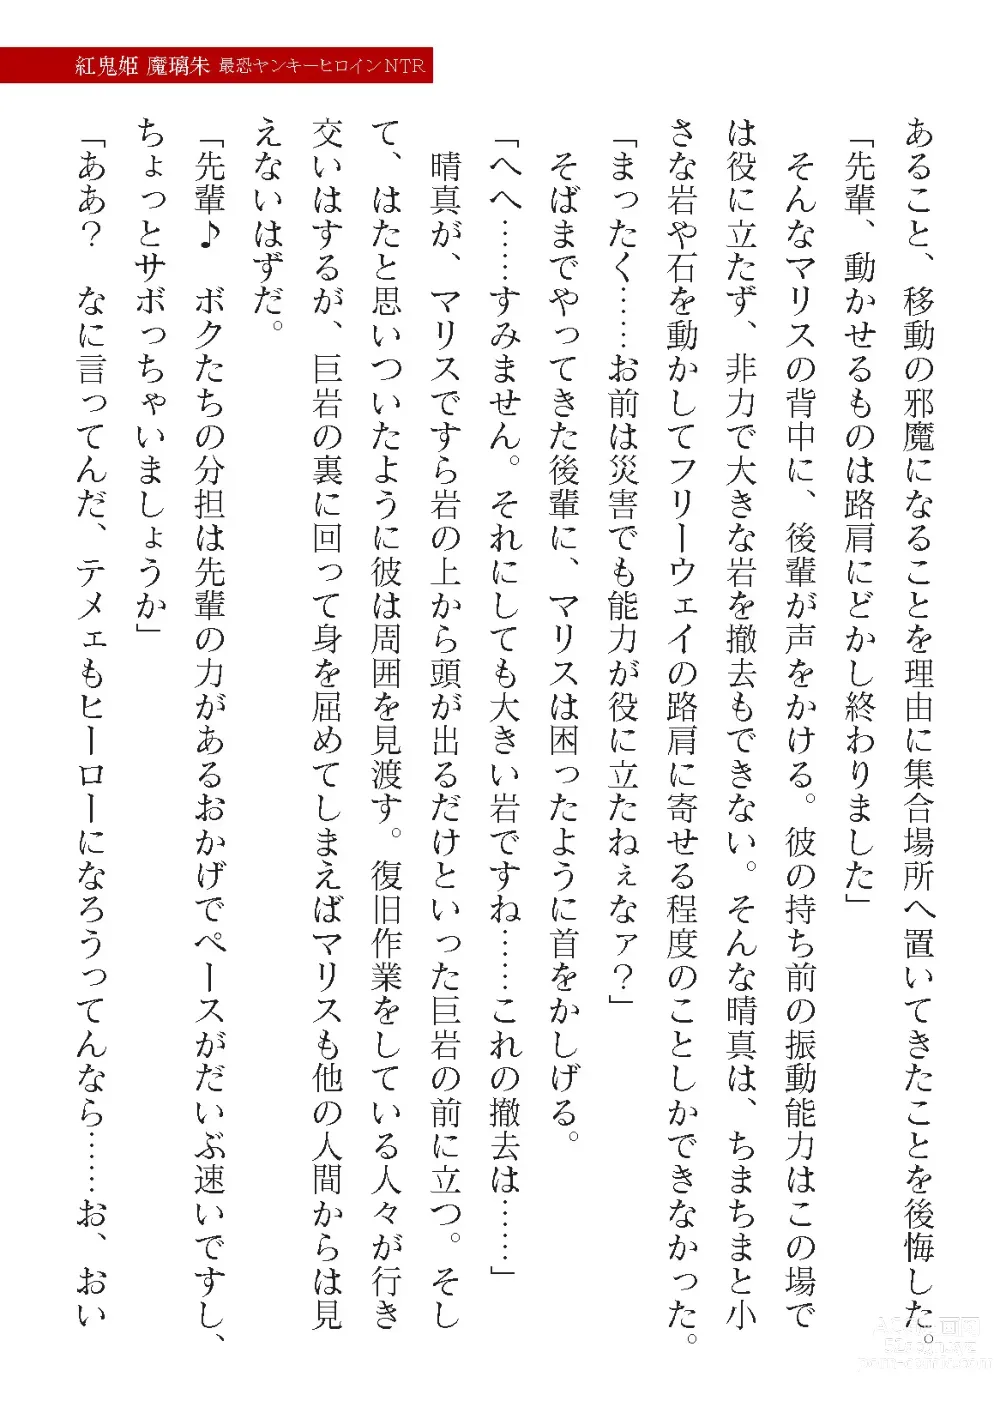 紅鬼姫 魔璃朱 最恐ヤンキーヒロインNTR
あること、移動の邪魔になることを理由に集合場所へ置いてきたことを後悔した。
「先輩、動かせるものは路肩にどかし終わりました」
　そんなマリスの背中に、後輩が声をかける。彼の持ち前の振動能力はこの場で
は役に立たず、非力で大きな岩を撤去もできない。そんな晴真は、ちまちまと小
さな岩や石を動かしてフリーウェイの路肩に寄せる程度のことしかできなかった。
「まったく……お前は災害でも能力が役に立たねぇなァ？」
　そばまでやってきた後輩に、マリスは困ったように首をかしげる。
「へへ……すみません。それにしても大きい岩ですね……これの撤去は……」
　晴真が、マリスですら岩の上から頭が出るだけといった巨岩の前に立つ。そし
て、はたと思いついたように彼は周囲を見渡す。復旧作業をしている人々が行き
交いはするが、巨岩の裏に回って身を屈めてしまえばマリスも他の人間からは見
えないはずだ。
「先輩♪　ボクたちの分担は先輩の力があるおかげでペースがだいぶ速いですし、
ちょっとサボっちゃいましょうか」
「ああ？　なに言ってんだ、テメェもヒーローになろうってんなら……お、おい